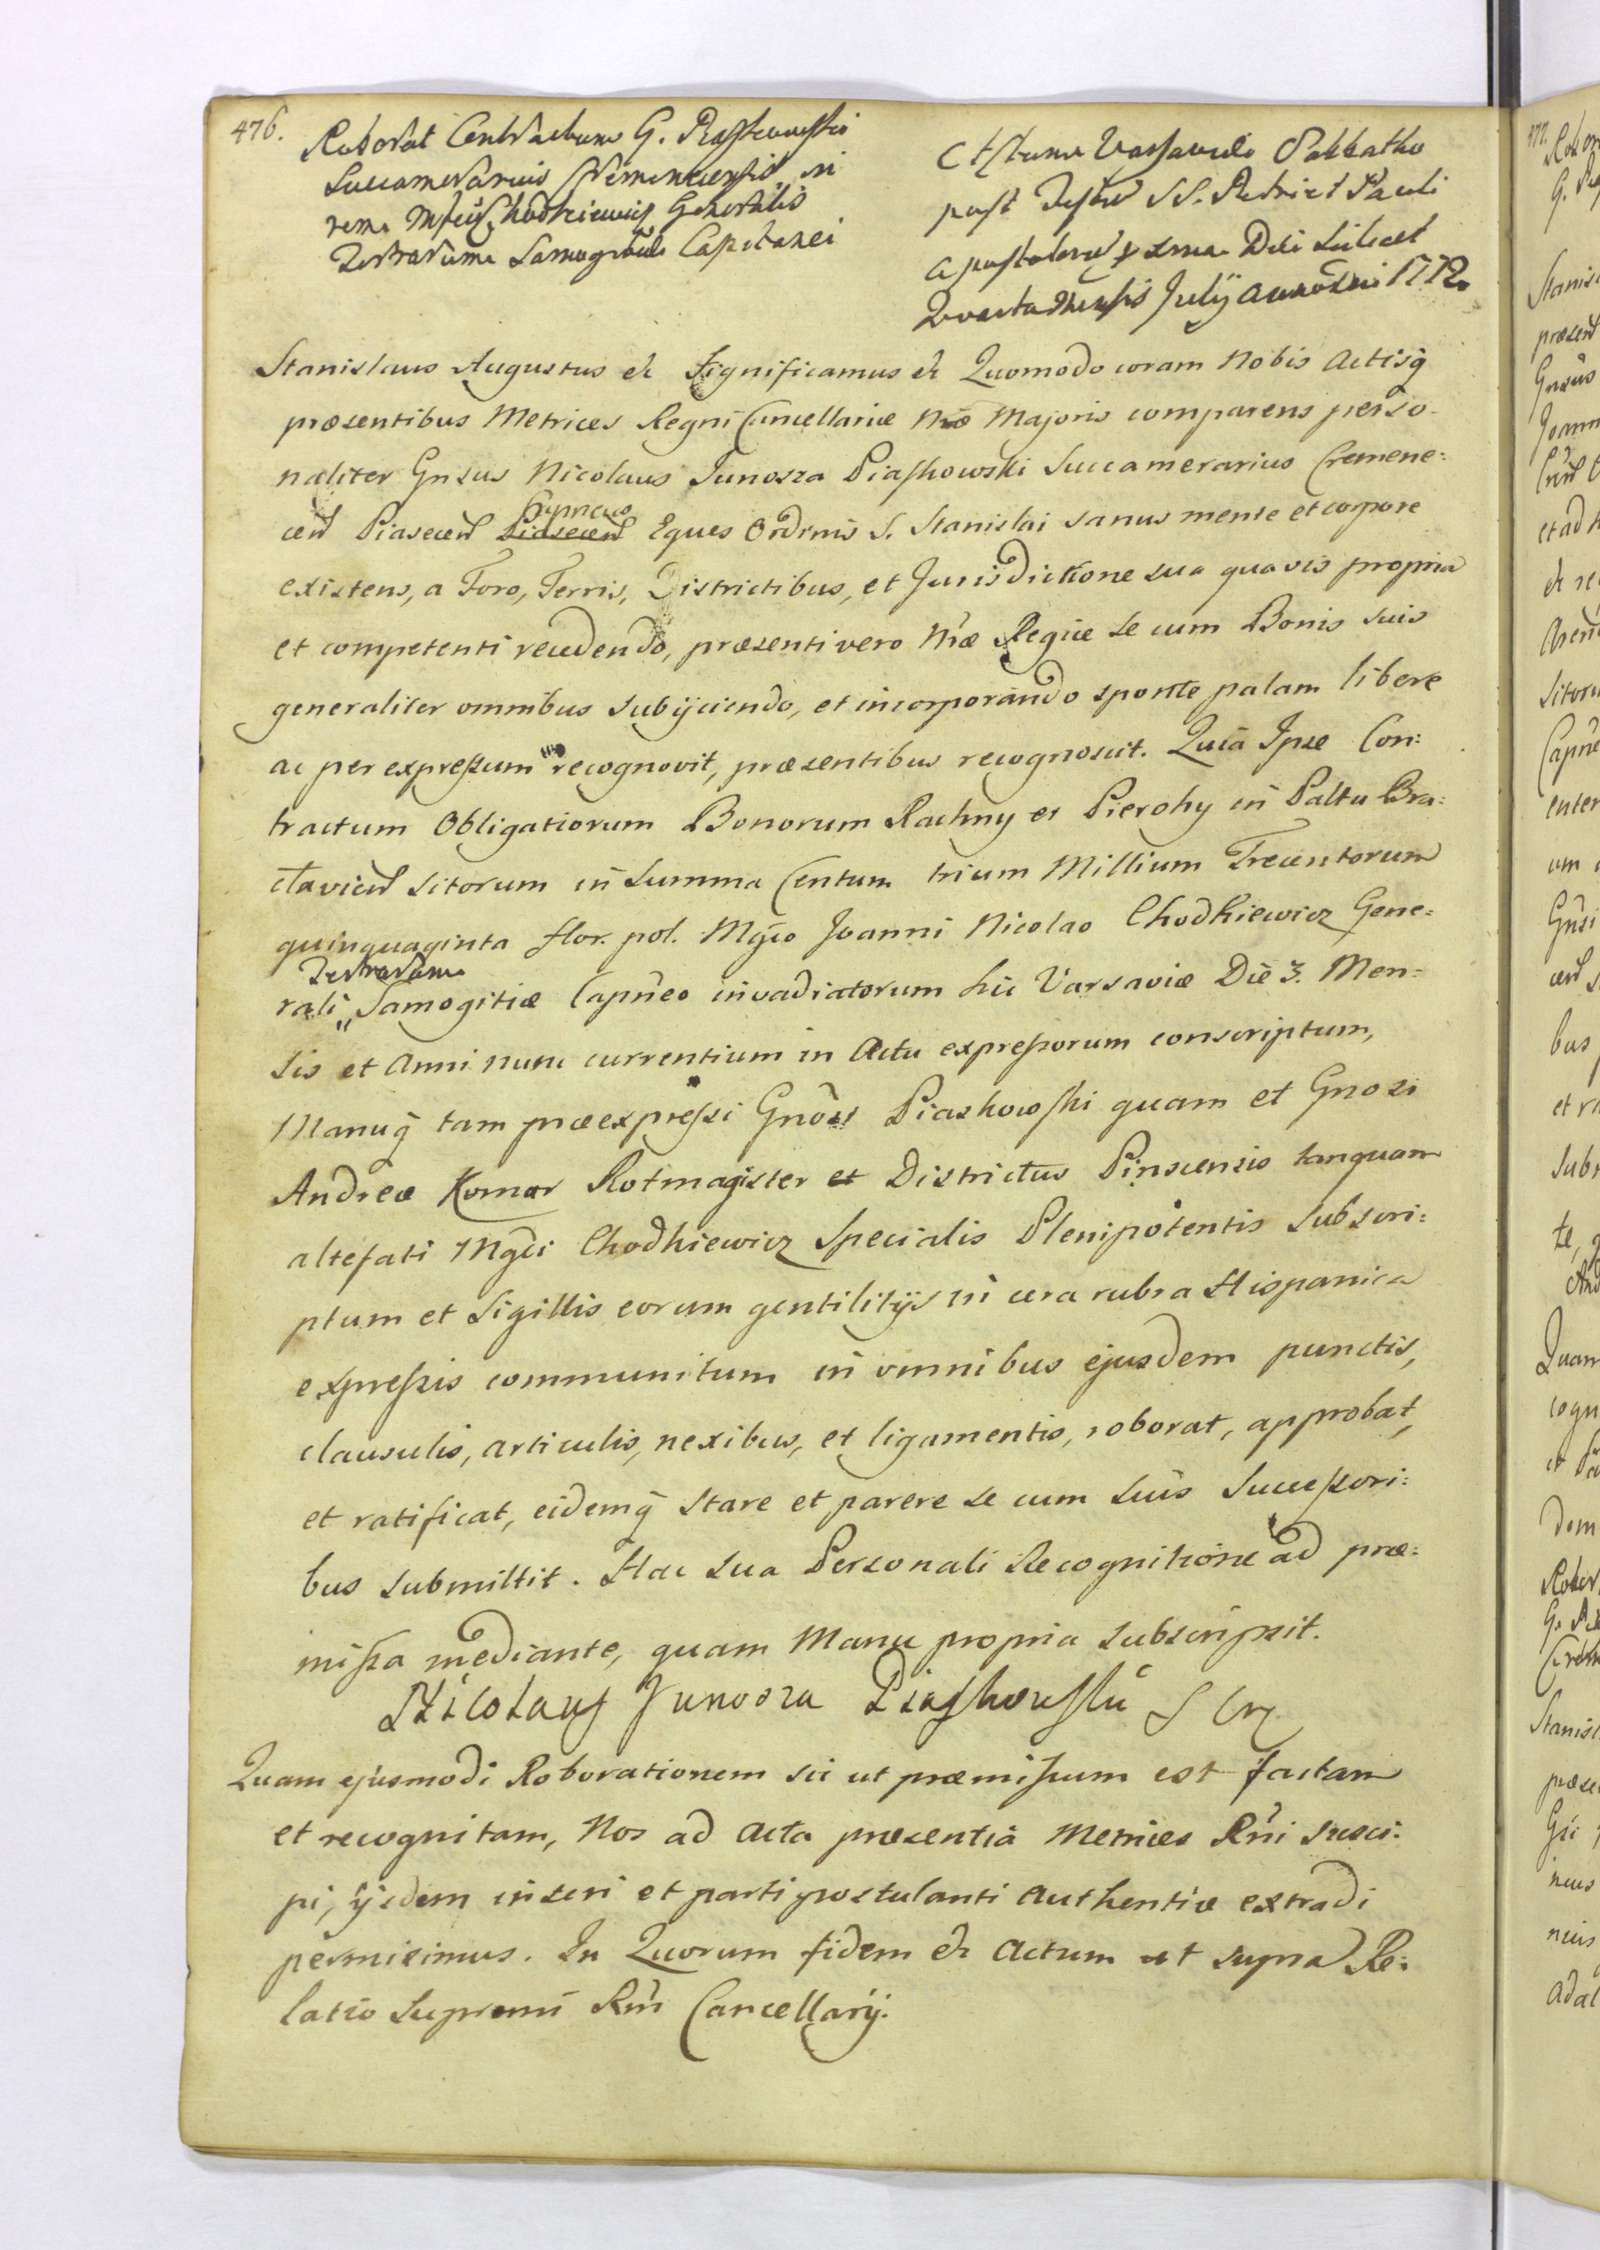 476.
Roborat Contractum G. Piaskowski
Succamerarius Cremenecensis in
rem Mfci Chodkiewicz Generalis
Terrarum Samogitiae Capitanei
Actum Varsaviae Sabbatho
post Festum SS. Petri et Pauli
Apostolorum proxima Die scilicet
Quarta Mensis Julij Anno Dni 1772.
Stanislaus Augustus &c Significamus &c Quomodo coram Nobis Actisq
præsentibus Metrices Regni Cancellariæ Nræ Majoris comparens perso-
naliter Gnsus Nicolaus Junosza Piaskowski Succamerarius Cremene:
cen Piasecen Piasecen Eques Ordinis S. Stanislai sanus mente et corpore
existens, a Foro, Terris, Districtibus, et Jurisdictione sua quavis propria
et competenti recedendo, præsenti vero Nræ Regiæ se cum Bonis suis
generaliter omnibus subijciendo, et incorporando sponte palam libere
ac per expressum recognovit, præsentibus recognoscit. Quia Ipse Con:
tractum Obligatiorum Bonorum Rachny et Pierohy in Paltu Bra:
clavien sitorum in Summa Centum trium Millium Trecentorum
quinquaginta flor. pol. Mgco Joanni Nicolao Chodkiewicz Gene:
Terrarum
rali " Samogitiæ Capneo invadiatorum hic Varsaviæ Die 3. Men:
sis et Anni nunc currentium in Actu expressorum conscriptum,
Manuq tam præexpressi Gnosi Piaskowski quam et Gnosi
Andreæ Komar Rotmagister et Districtus Pinscensis tanquam
altefati Mgci Chodkiewicz Specialis Plenipotentis subscri:
ptum et Sigillis eorum gentilitijs in cera rubra Hispanica
expressis communitum in omnibus ejusdem punctis,
clausulis, articulis, nexibus, et ligamentis, roborat, approbat,
et ratificat, eidemq stare et parere se cum suis Successori:
bus submittit. Hac sua Personali Recognitione ad præ:
missa mediante, quam Manu propria subscripsit.
Nicolaus Junosza Piaskowski S Crz
Quam ejusmodi Roborationem sic ut præmissum est factam
et recognitam, Nos ad Acta præsentia Metrices Rni susci:
pi, ijsdem inseri et parti postulanti authentice extradi
permisimus. In Quorum fidem &c Actum ut supra Re:
latio Supremi Rni Cancellarij.